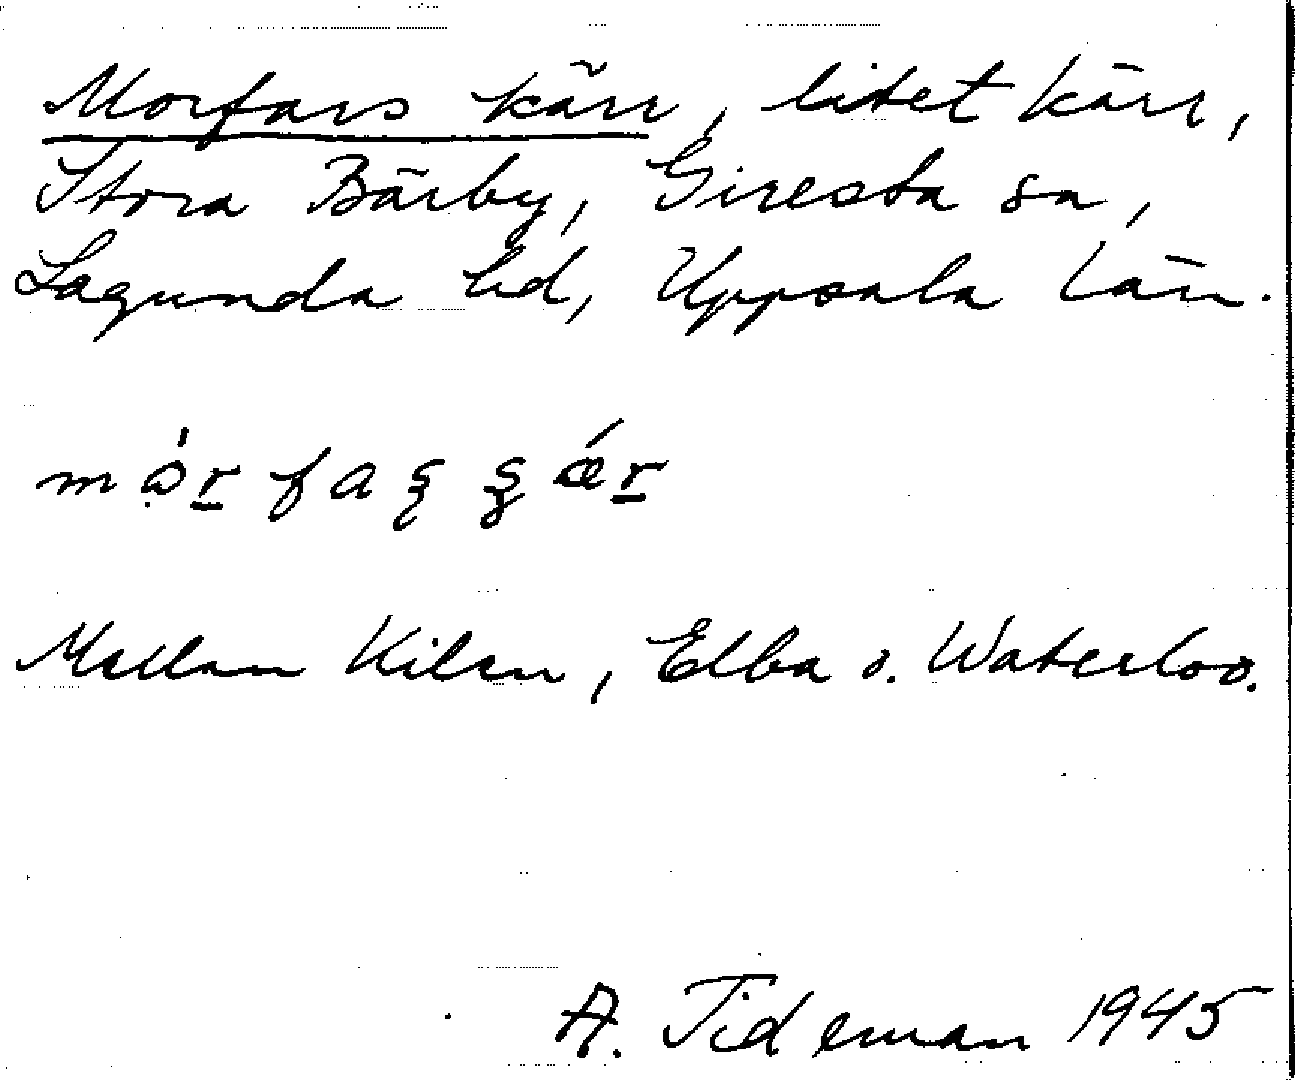 Morfars kärr, litet kärr,
Stora Bärby, Giresta sn,
Lagunda hd, Uppsala län.
Mellan Kilen, Elba o. Waterloo.
A. Tideman 1945